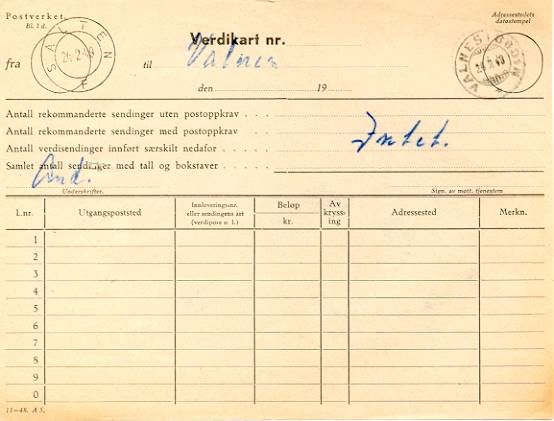 Postverket.
Bl. 1 d.
Verdikart nr.
Adressestedets
datostempel
SALTEN
24.2.49
F
VALNES I BODIN
24.2.49
fra
til Valnes
den 19
Antall rekommanderte sendinger uten postoppkrav . . .
Antall rekommanderte sendinger med postoppkrav . . .
Antall verdisendinger innført særskilt nedafor . . . . . .
Samlet antall sendinger med tall og bokstaver . . . . . .
Intet.
Underskrifter.
Sign. av mott. tjenestem
L.nr. Utgangspoststed Innleveringsnr. eller sendingens art (verdipose o. l.) Beløp kr. Av kryss- ing Adressested Merkn.
1
2
3
4
5
6
7
8
9
0
11-48. A 5.